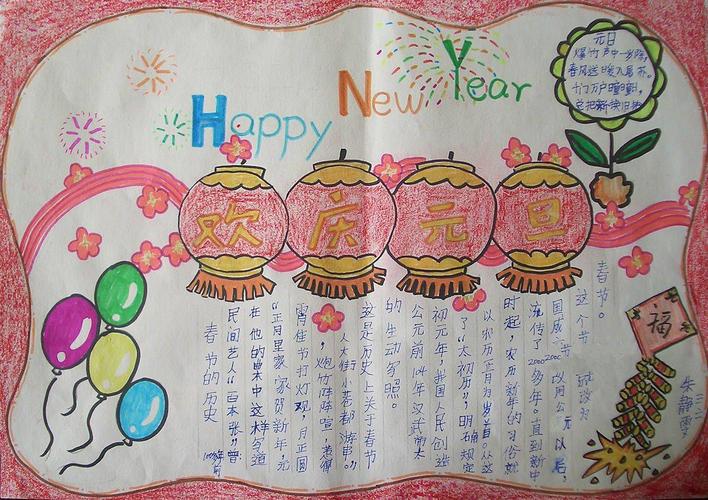 Happy New Year
元日
爆竹声中一岁除,
春风送暖入屠苏。
千门万户曈曈日,
总把新桃换旧
欢庆元旦
福
春节的历史
100多年前
民间艺人“百本张”曾
在他的 中这样写道
“正月里家家贺新年,元
宵佳节打灯观,月正圆
,炮竹阵阵喧,惹得
人大街小巷都游串。”
这是历史上关于春节
的生动写照。
公元前104年汉武帝太
初元年,我国人民创造
了“太初历”,明确规定
以农历正月为岁首。从这
时起,农历新年的习俗就
流传了2000多年。直到新中
国成立 改用公元以后,
这个节 被改为
春节。
朱静雯